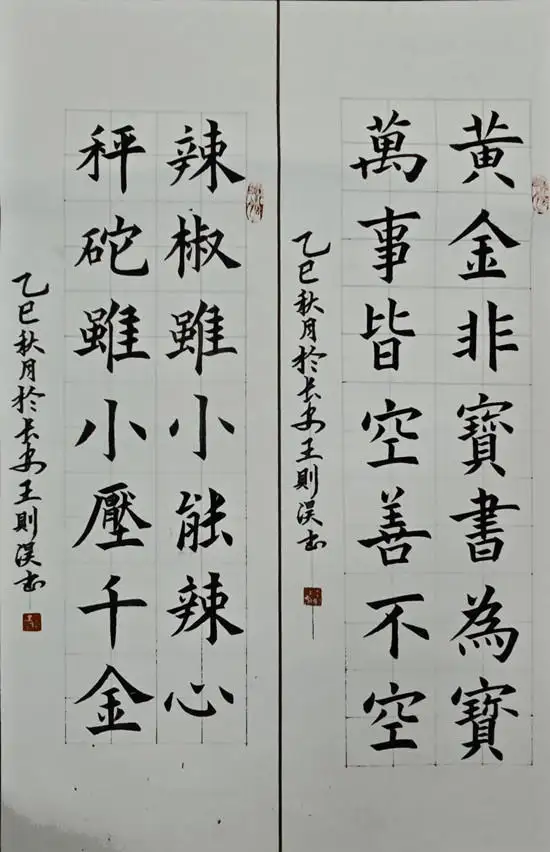 黄金非寶書為寶
萬事皆空善不空
乙巳秋月於长沙王則淏书
辣椒雖小能辣心
秤砣雖小壓千金
乙巳秋月於长沙王則淏书